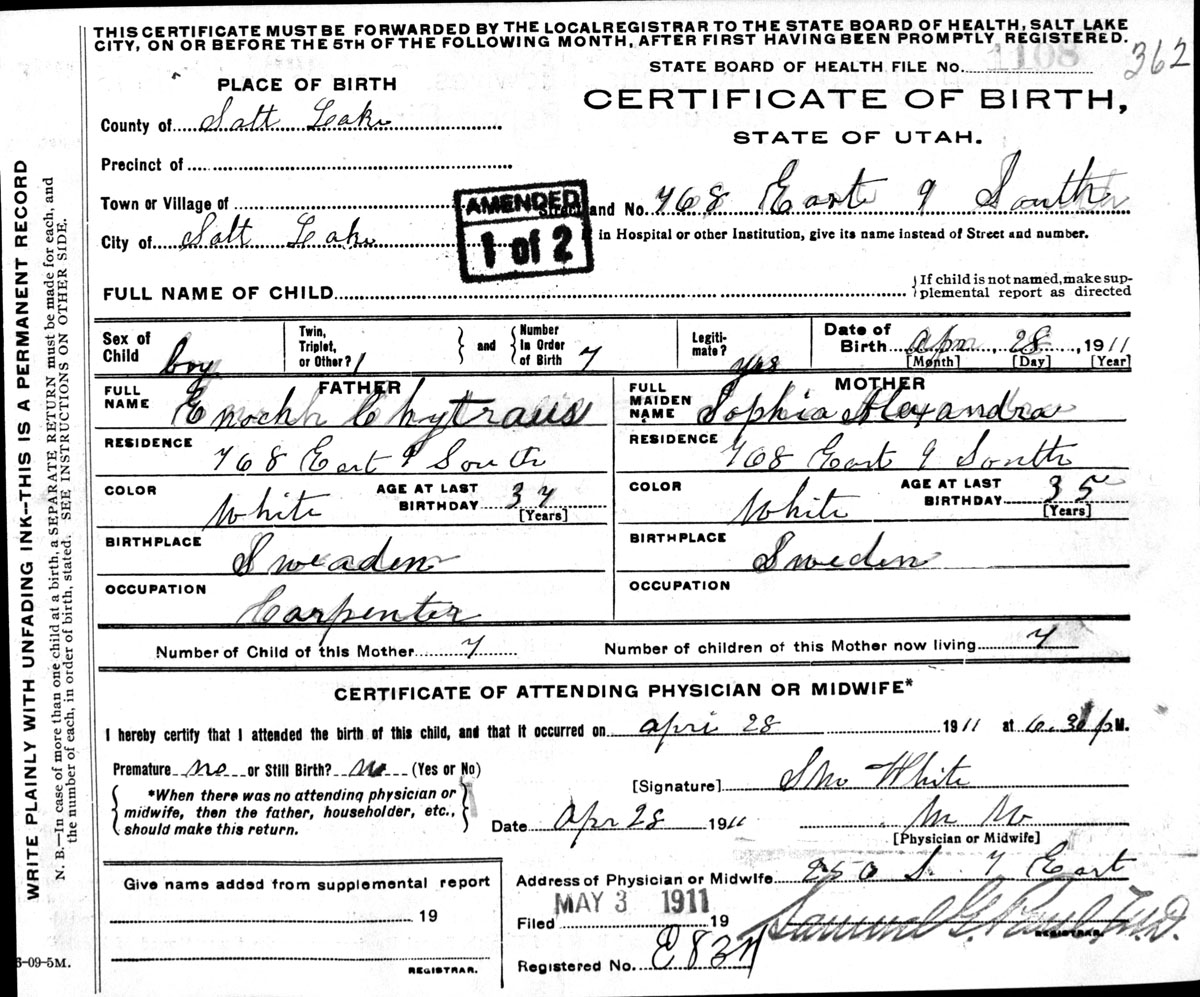 THIS CERTIFICATE MUST BE FORWARDED BY THE LOCAL REGISTRAR TO THE STATE BOARD OF HEALTH, SALT LAKE
CITY, ON OR BEFORE THE 5TH OF THE FOLLOWING MONTH, AFTER FIRST HAVING BEEN PROMPTLY REGISTERED.
362
STATE BOARD OF HEALTH FILE No. 1108
PLACE OF BIRTH
CERTIFICATE OF BIRTH,
STATE OF UTAH.
County of Salt Lake
Precinct of
Town or Village of
AMENDED
1 of 2
Street and No. 768 East 9 South
City of Salt Lake
in Hospital or other Institution, give its name instead of Street and number.
FULL NAME OF CHILD
{If child is not named, make sup-
plemental report as directed
Sex of Child boy
Twin, Triplet, or Other? 1
and
Number In Order of Birth 7
Legiti-mate? yes
Date of Birth Apr, 28, 1911
[Month] [Day] [Year]
FATHER
FULL NAME Enoch Chytraus
MOTHER
FULL MAIDEN NAME Sophia Alexandra
RESIDENCE 768 East 9 South
RESIDENCE 768 East 9 South
COLOR White AGE AT LAST BIRTHDAY 37 [Years]
COLOR White AGE AT LAST BIRTHDAY 35 [Years]
BIRTHPLACE Sweaden
BIRTHPLACE Sweden
OCCUPATION Carpenter
OCCUPATION
Number of Child of this Mother 7
Number of children of this Mother now living 7
CERTIFICATE OF ATTENDING PHYSICIAN OR MIDWIFE*
I hereby certify that I attended the birth of this child, and that it occurred on apri 28 1911 at 6.30 p M.
Premature no or Still Birth? no (Yes or No)
[Signature] White
*When there was no attending physician or
midwife, then the father, householder, etc.,
should make this return.
Date Apr 28 1911
[Physician or Midwife]
Give name added from supplemental report
19
REGISTRAR.
Address of Physician or Midwife 250 S. 7 East
Filed MAY 3 1911 19
Samuel G. Paul, M.D.
REGISTRAR.
Registered No.
WRITE PLAINLY WITH UNFADING INK--THIS IS A PERMANENT RECORD
N. B.—In case of more than one child at a birth, a SEPARATE RETURN must be made for each, and
the number of each, in order of birth, stated. SEE INSTRUCTIONS ON OTHER SIDE.
6-09-5M.